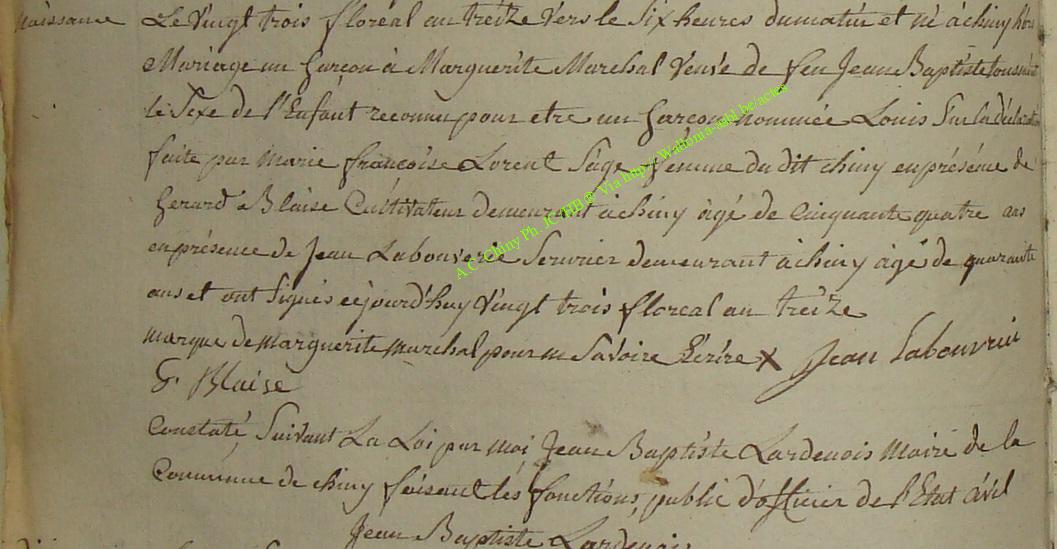 Naissance
Le Vingt trois floréal an treize vers le six heures du matin et né à chiny hors
Mariage un garçon à Marguerite Marchal Veuve de feu Jean Baptiste toussaint
le Sexe de l'Enfant reconnu pour etre un garçon nommée Louis Sur la déclaration
faite par Marie françoise Lorent Sage femme du dit chiny en présence de
Gerard Blaise Cultivateur demeurant à chiny agé de Cinquante quatre ans
en présence de Jean Labouverie Serurier demeurant à chiny agé de quarante
ans et ont Signés cejourd'huy vingt trois floreal an treize
marque de Marguerite Marchal pour ne Savoire Ecrire X Jean Labouvrie
G. Blaise
Constaté Suivant La Loi par moi Jean Baptiste Lardenois Maire de la
Commune de chiny faisant les fonctions public d'officier de l'Etat Civil
Jean Baptiste Lardenois
A.C. Chiny Ph. JC HB@ Via http://Wallonia-asbl.be/actes